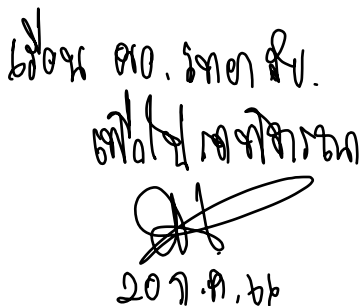 เรียน ผอ.
เพื่อโปรดพิจารณา
20 ธ.ค. 66